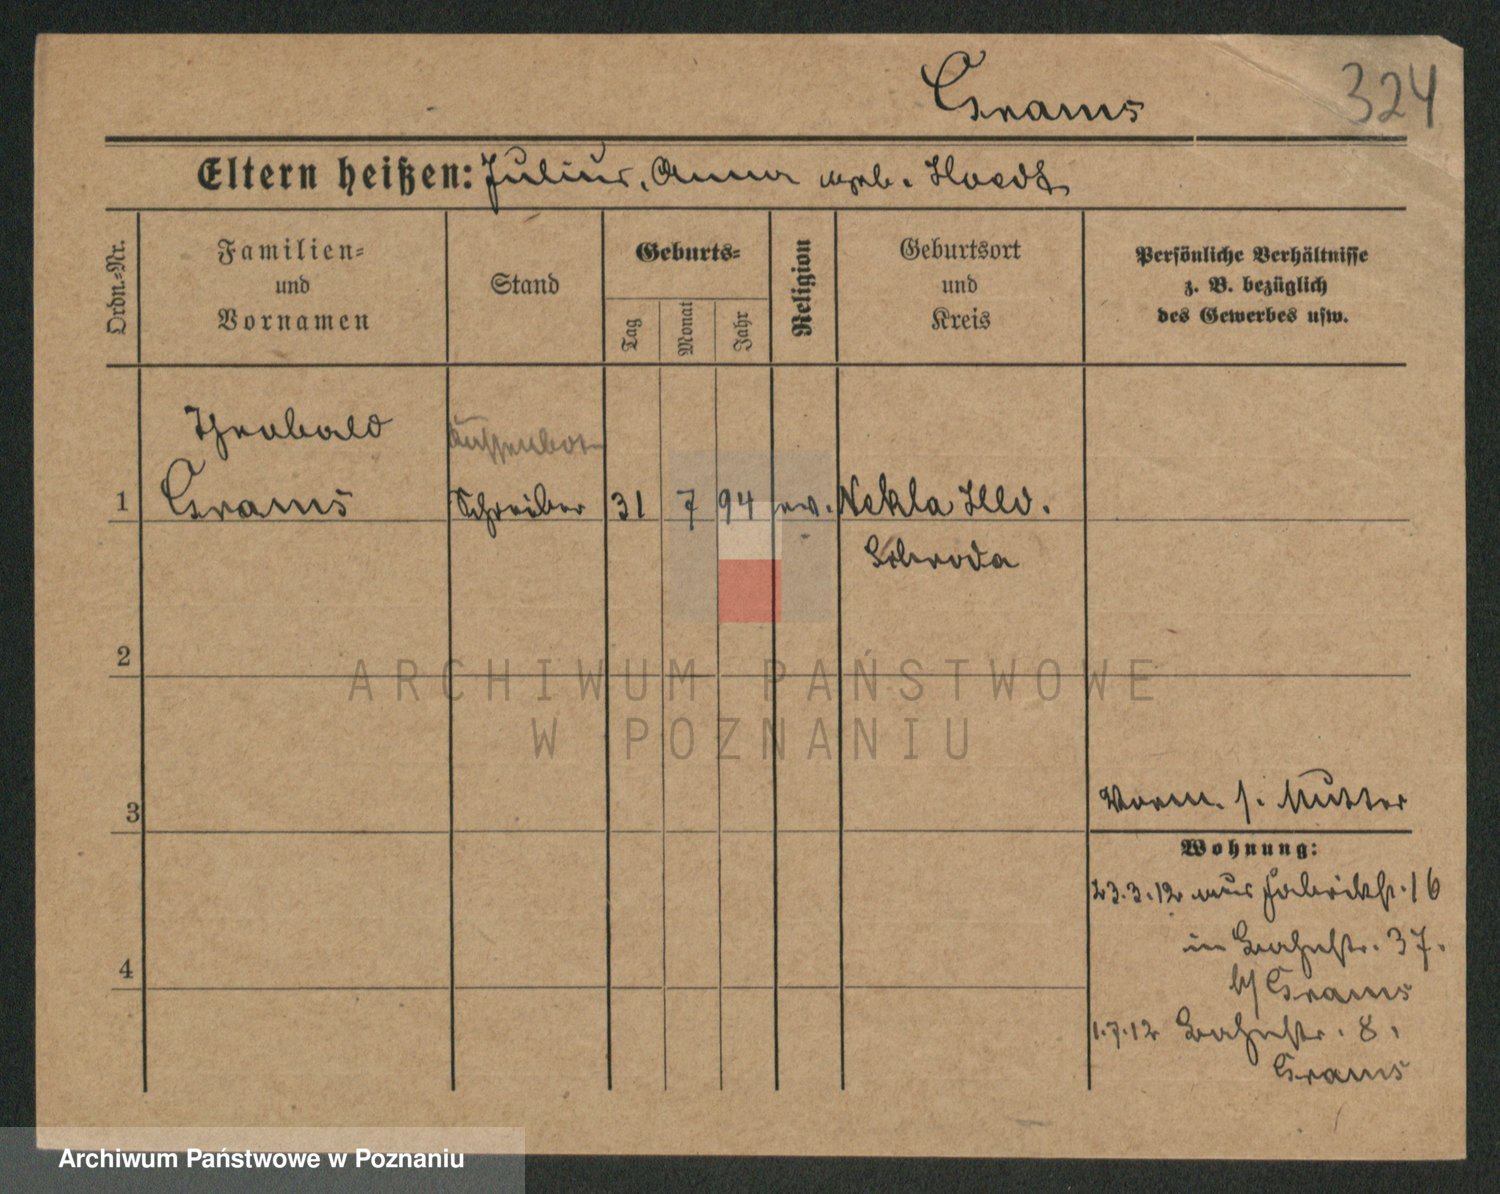 Grams
324
Eltern heißen: Julius, Anna geb. Haedt
Ordn.-Nr.
Familien-
und
Vornamen
Stand
Geburts-
Tag
Monat
Jahr
Religion
Geburtsort
und
Kreis
Persönliche Verhältnisse
z. B. bezüglich
des Gewerbes usw.
Theobald
1 Grams Schreiber 31 7 94 ev. Nekla Hld.
Schroda
2
ARCHIWUM PAŃSTWOWE
W POZNANIU
3
Vorm. s. Mutter
Wohnung:
23.3.12 aus Fabrikstr. 16
in Bahnstr. 37.
b/ Grams
4
1.7.12 Bahnstr. 8.
Grams
Archiwum Państwowe w Poznaniu